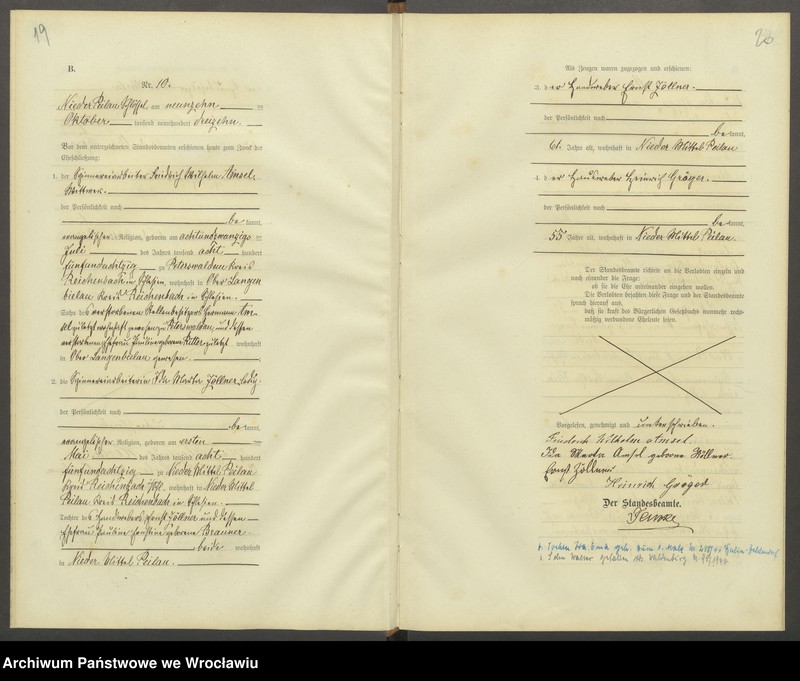 19
B.
Nr. 10.
Nieder Peilau Schlössel am neunzehn
Oktober tausend neunhundert dreizehn.
Vor dem unterzeichneten Standesbeamten erschienen heute zum Zweck der
Eheschließung:
1. der Spinnereiarbeiter Friedrich Wilhelm Amsel,
Wittwer.
der Persönlichkeit nach
be kannt,
evangelischer Religion, geboren am achtundzwanzigs
Juli des Jahres tausend acht hundert
fünfundachtzig zu Peterswaldau Kreis
Reichenbach in Schlesien, wohnhaft in Ober Langen
bielau Kreis Reichenbach in Schlesien.
Sohn des verstorbenen Stellenbesitzers Hermann Am
sel zuletzt wohnhaft gewesen zu Peterswaldau, und dessen
verstorbenen Ehefrau Pauline geborene Ritter zuletzt wohnhaft
in Ober Langenbielau gewesen.
2. die Spinnereiarbeiterin Ida Martha Zöllner, ledig.
der Persönlichkeit nach
be kannt,
evangelischer Religion, geboren am ersten
Mai des Jahres tausend acht hundert
fünfundachtzig zu Nieder Mittel Peilau
Kreis Reichenbach, wohnhaft in Nieder Mittel
Peilau Kreis Reichenbach in Schlesien.
Tochter des Handwebers Ernst Zöllner und dessen
Ehefrau Pauline Ernstine geborene Brauner
beide wohnhaft
in Nieder Mittel Peilau.
Als Zeugen waren zugezogen und erschienen:
3. der Handweber Ernst Zöllner.
der Persönlichkeit nach
be kannt,
61 Jahre alt, wohnhaft in Nieder Mittel Peilau
4. der Hausweber Heinrich Gröger.
der Persönlichkeit nach
be kannt,
55 Jahre alt, wohnhaft in Nieder Mittel Peilau.
Der Standesbeamte richtete an die Verlobten einzeln und
nach einander die Frage:
ob sie die Ehe miteinander eingehen wollen.
Die Verlobten bejahten diese Frage und der Standesbeamte
sprach hierauf aus,
daß sie kraft des Bürgerlichen Gesetzbuchs nunmehr recht-
mäßig verbundene Eheleute seien.
Vorgelesen, genehmigt und unterschrieben.
Friedrich Wilhelm Amsel.
Ida Martha Amsel geborne Zöllner.
Ernst Zöllner
Heinrich Gröger
Der Standesbeamte.
Archiwum Państwowe we Wrocławiu